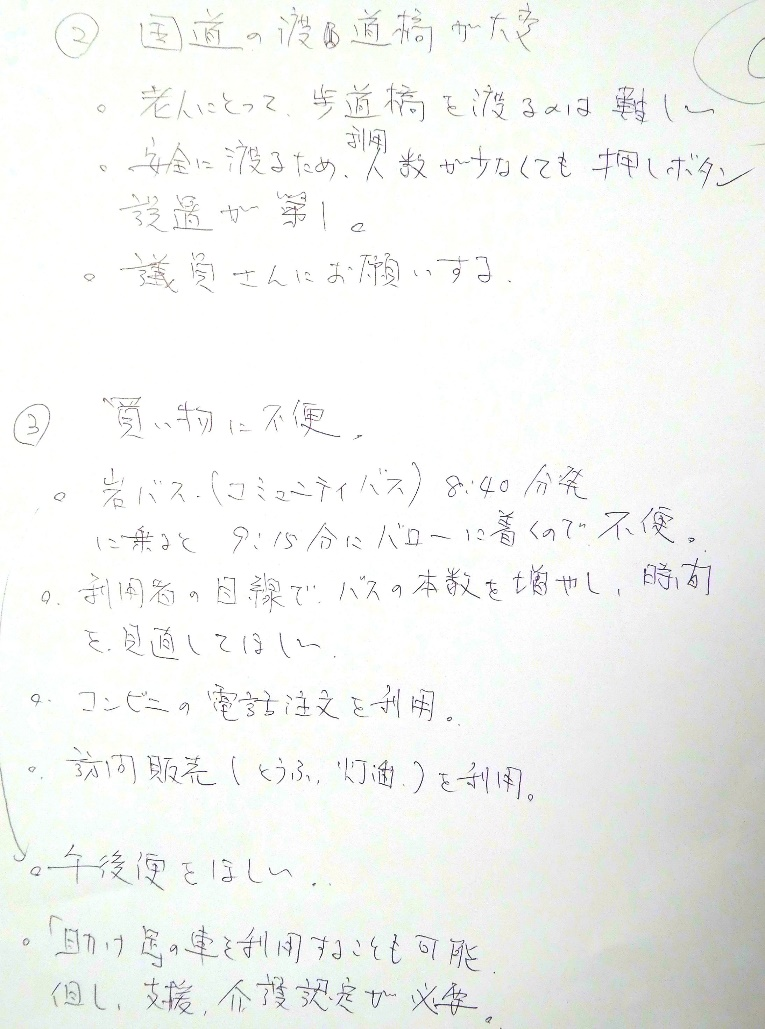 ② 国道の渡る道橋が大変
。老人にとって、歩道橋を渡るのは難しい
。安全に渡るため、利用人数が少なくても押しボタン
設置が楽し。
。議員さんにお願いする.
③ 買い物に不便.
。岩バス.(コミュニティバス) 8:40分発
に乗ると 9:15分にバローに着くので不便。
。利用者の目線で.バスの本数を増やし、時間
を.見直してほしい.
。コンビニの電話注文を利用。
。訪問販売(とうふ、灯油.)を利用。
。午後便をほしい..
。「助け の車を利用することも可能.
但し、支援、介護認定が必要。